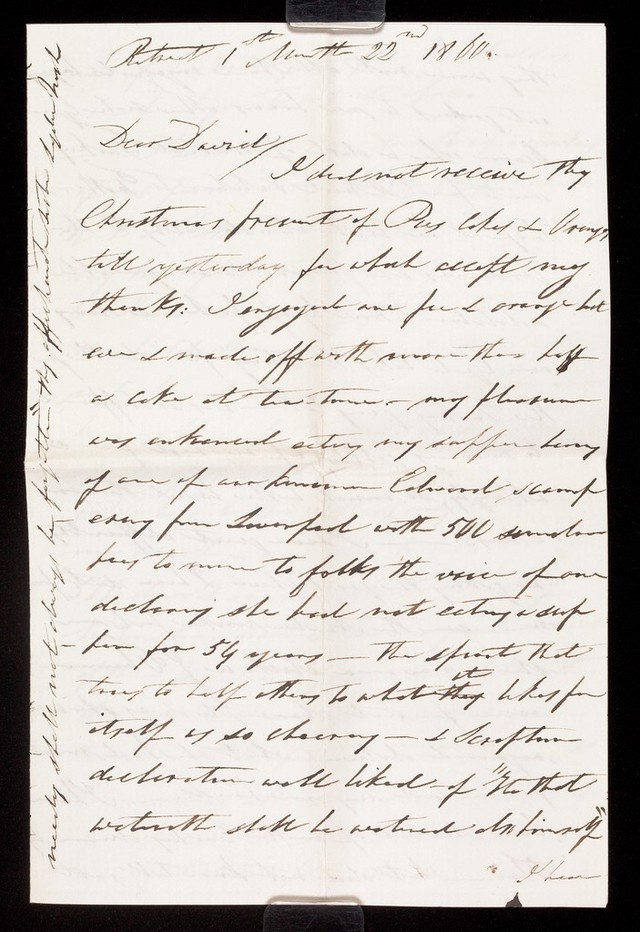 Retreat 1st Month 22nd 1860.
Dear David/
I did not receive thy
Christmas present of Pies Cakes & Oranges
till yesterday for which accept my
thanks: I enjoyed one pie & orange last
eve & made off with more than half
a cake at tea time - my pleasure
was enhanced eating my supper
of one of our kinsman Edward
from Liverpool with 500 similar
pies to mine to folks the voice of one
declaring she had not eating a
for 54 years - the spirit that
tries to help others to what it likes for
itself is so cheering - & Scripture
declaration well liked - of "He that
watereth shall be watered also himself"
I hear
needy shall not always be forgotten thy affectionate